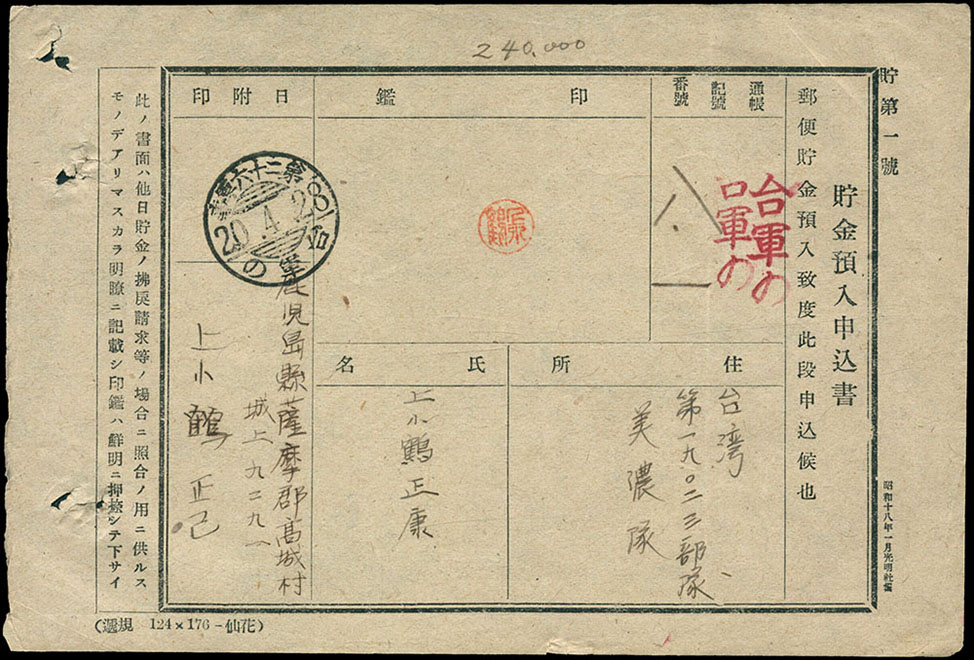 240,000
貯第一號
貯金預入申込書
昭和十八年一月光明社
郵便貯金預入致度此段申込候也
通帳
記號
番號
台軍の
口軍の
八一
印鑑
日附印
第二十六
20.4.28
台軍の
住所
台湾
第一九〇二三部隊
美濃隊
氏名
上小鶴正康
鹿児島縣薩摩郡高城村
城上九二九一
上小鶴正己
此ノ書面ハ他日貯金ノ拂戻請求等ノ場合ニ照合ノ用ニ供ルス
モノデアリマスカラ明瞭ニ記載シ印鑑ハ鮮明ニ押捺シテ下サイ
(規選 124×176-仙花)